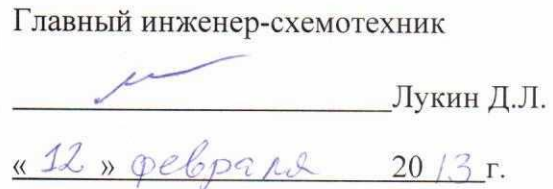 Главный инженер-схемотехник
Лукин Д.Л.
« 12 » февраля 2013 г.